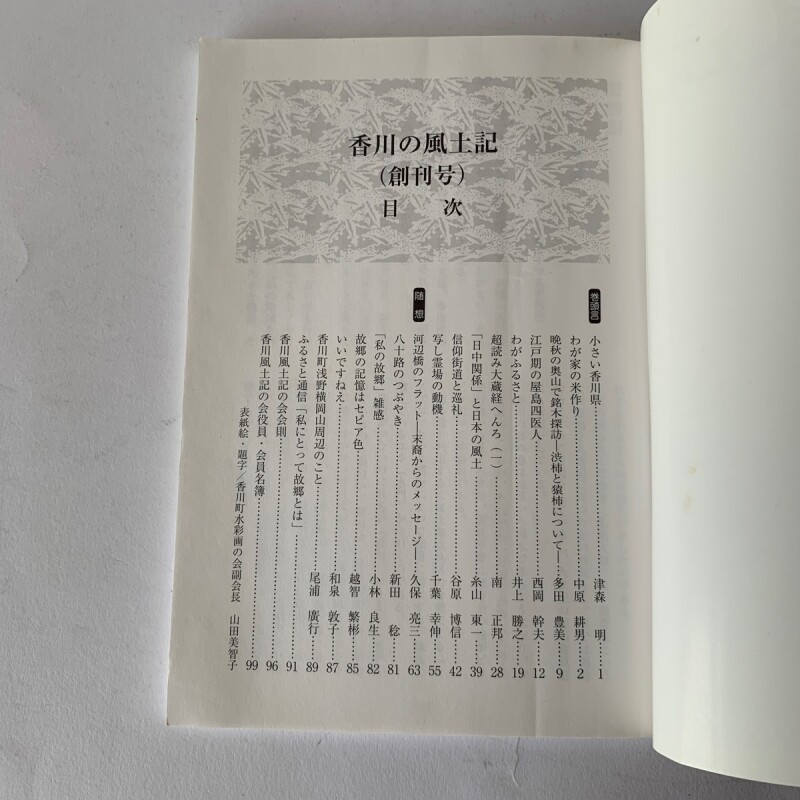 香川の風土記
（創刊号）
目　次
巻頭言
小さい香川県……津森　明…1
わが家の米作り……中原　耕男…2
晩秋の奥山で銘木探訪―渋柿と猿柿について―…多田　豊美…9
江戸期の屋島四医人……西岡　幹夫…12
わがふるさと……井上　勝之…19
超読み大蔵経へんろ（一）……南　正邦…28
「日中関係」と日本の風土……糸山　東一…39
信仰街道と巡礼……谷原　博信…42
写し霊場の動機……千葉　幸伸…55
随想
河辺橋のフラット―末裔からのメッセージ―…久保　亮三…63
八十路のつぶやき……新田　稔…81
「私の故郷」雑感……小林　良生…82
故郷の記憶はセピア色……越智　繁彬…85
いいですねえ……和泉　敦子…87
香川町浅野横岡山周辺のこと……尾浦　廣行…89
ふるさと通信「私にとって故郷とは」……91
香川風土記の会会則……96
香川風土記の会役員・会員名簿……99
表紙絵・題字／香川町水彩画の会副会長　山田美智子